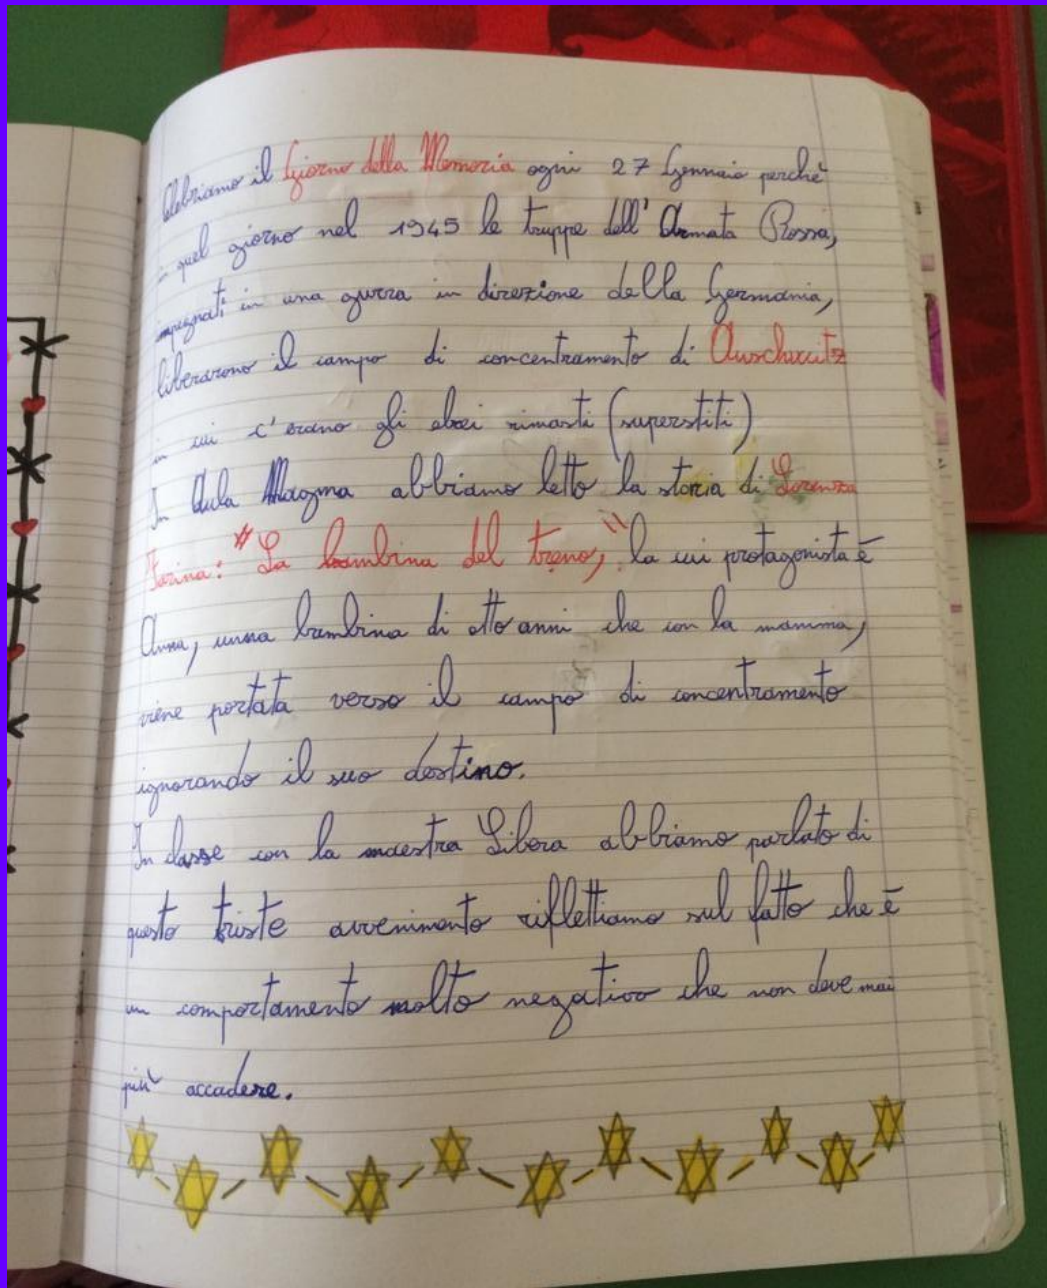 Celebriamo il Giorno della Memoria ogni 27 Gennaio perchè
in quel giorno nel 1945 le truppe dell'Armata Rossa,
impegnati in una gurra in direzione della Germania,
liberarono il campo di concentramento di Auschwitz
in cui c'erano gli ebrei rimasti (superstiti)
In Aula Magma abbiamo letto la storia di Lorenza
Farina: "La bambina del treno," la cui protagonista è
Anna, unna bambina di otto anni che con la mamma,
viene portata verso il campo di concentramento
ignorando il suo destino.
In classe con la maestra Libera abbiamo parlato di
questo triste avvenimento riflettiamo sul fatto che è
un comportamento molto negativo che non deve mai
più accadere.